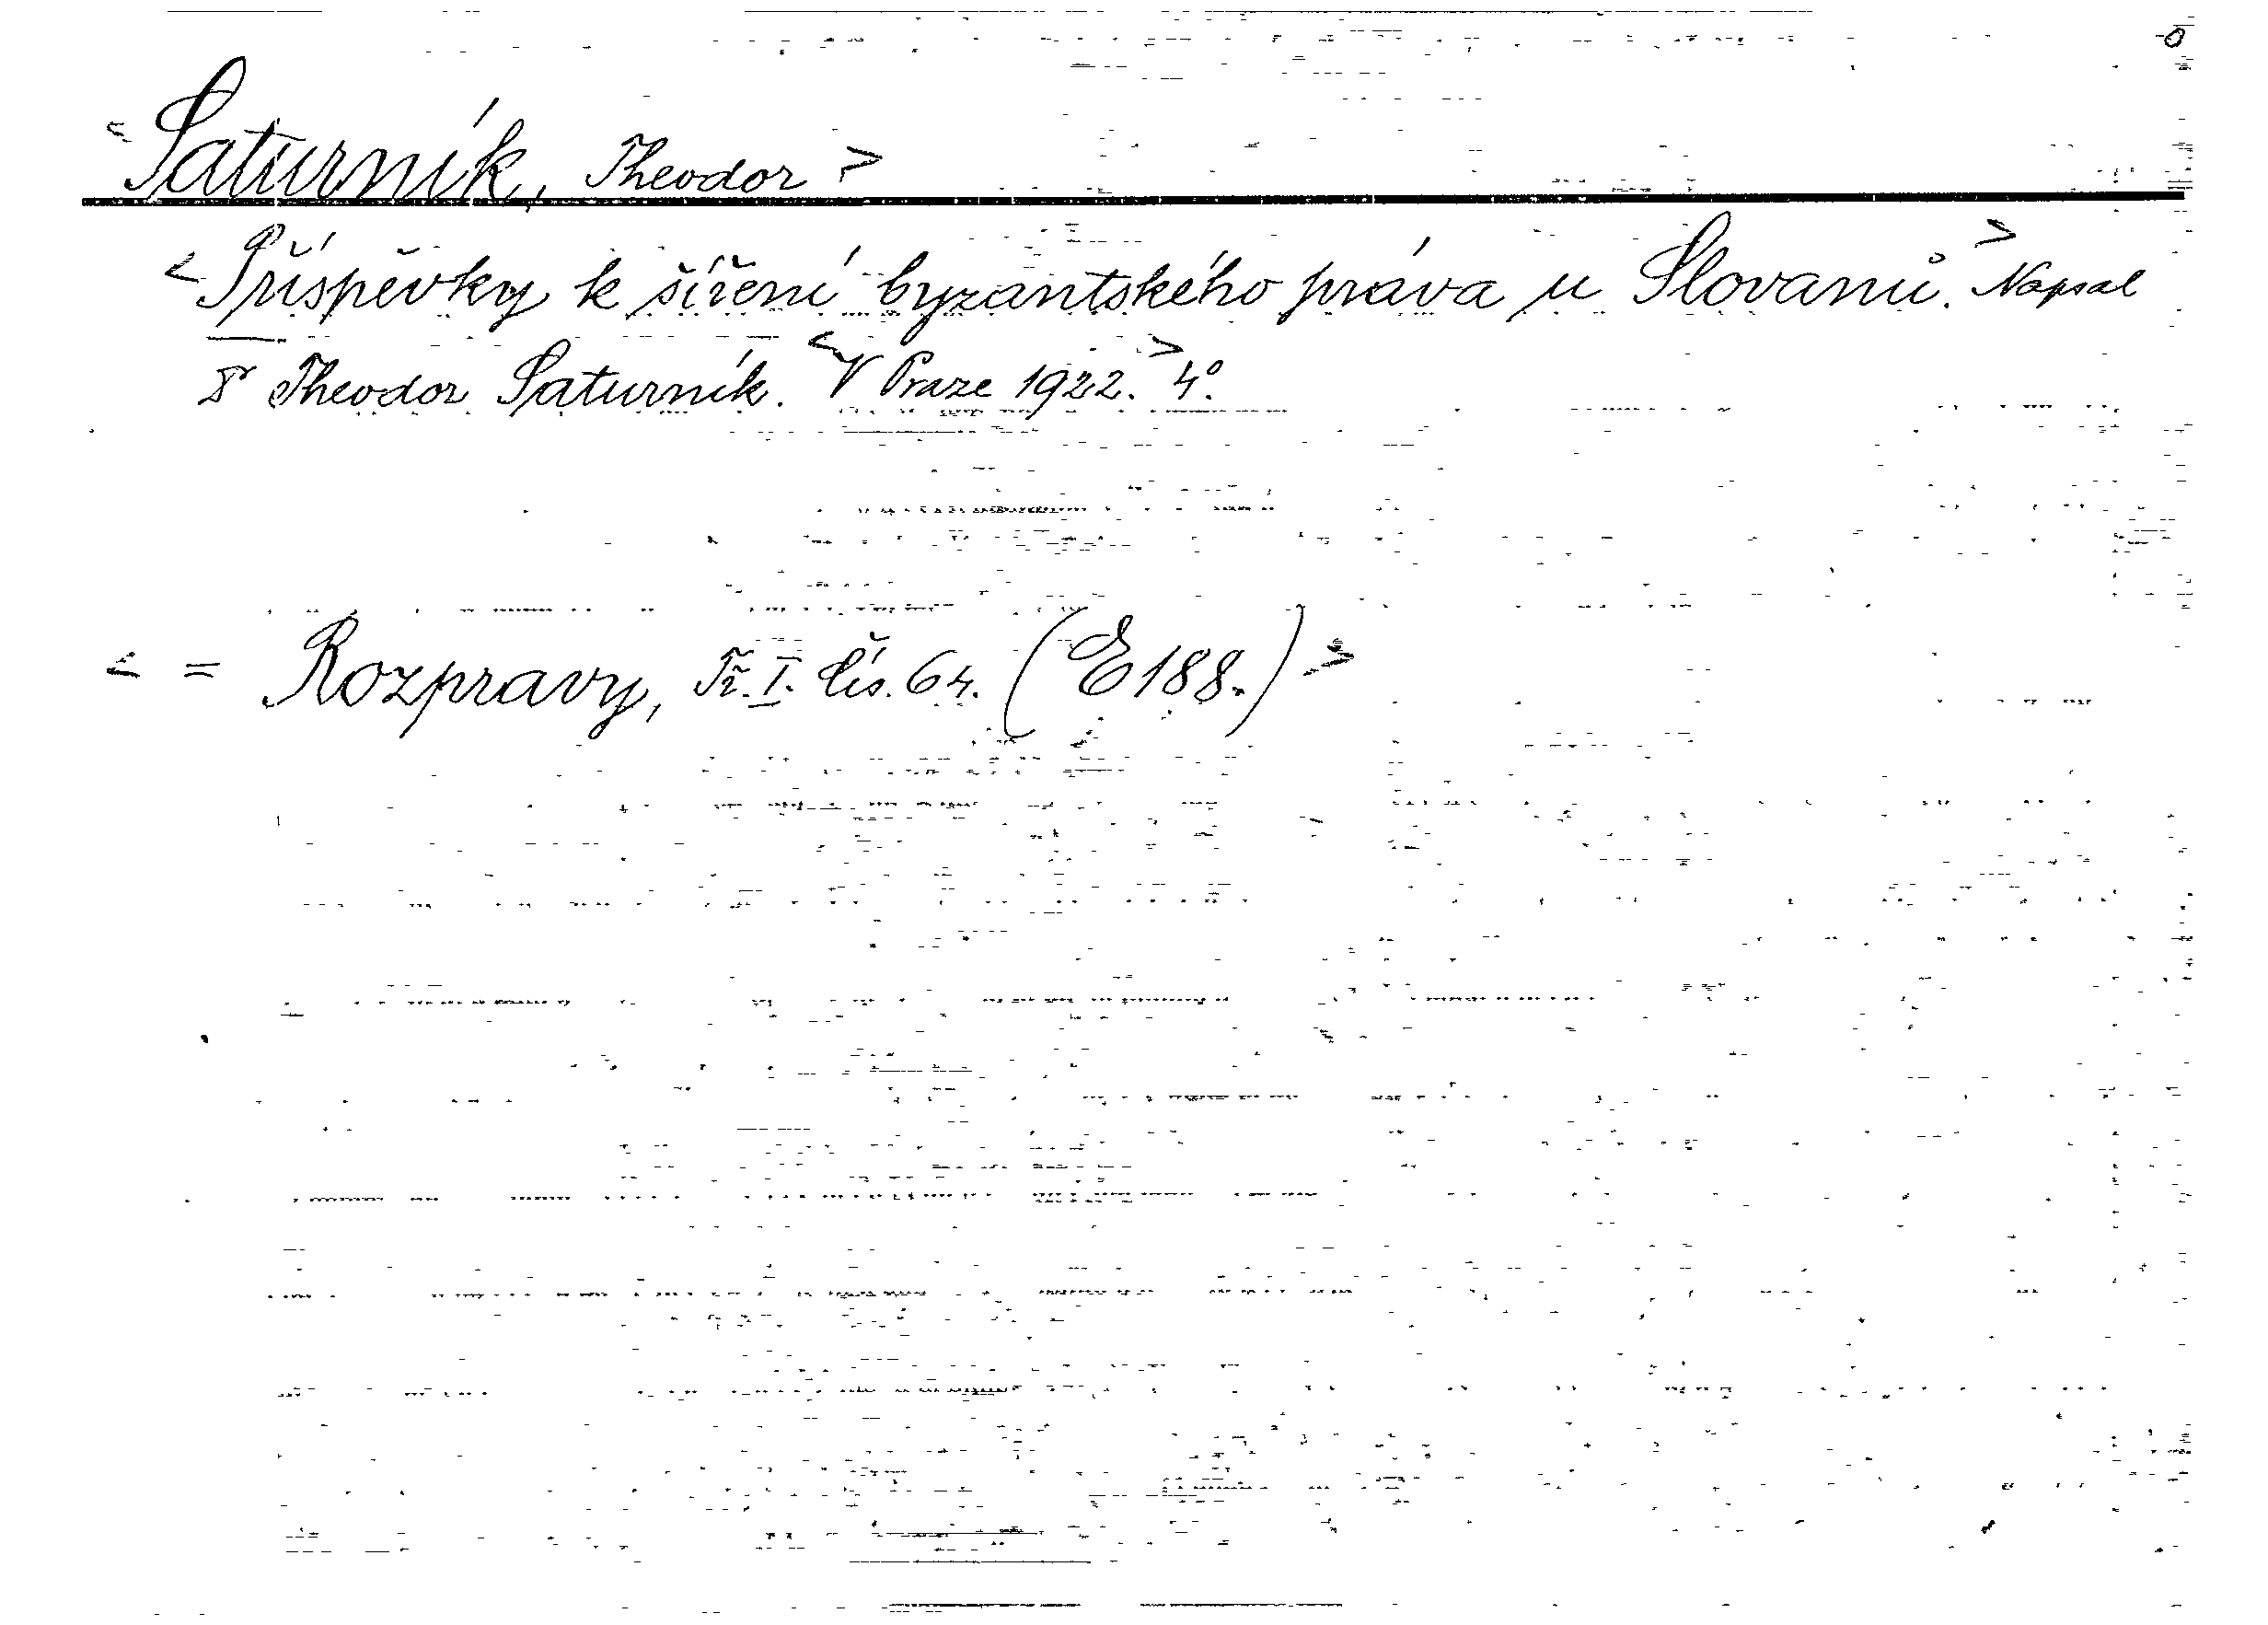 <Saturník, Theodor>
<Příspěvky k šíření byzantského práva u Slovanů.> Napsal
Theodor Saturník. <V Praze 1922.> 4°.
<= Rozpravy, Tř. I. čís. 64. (E188.)>